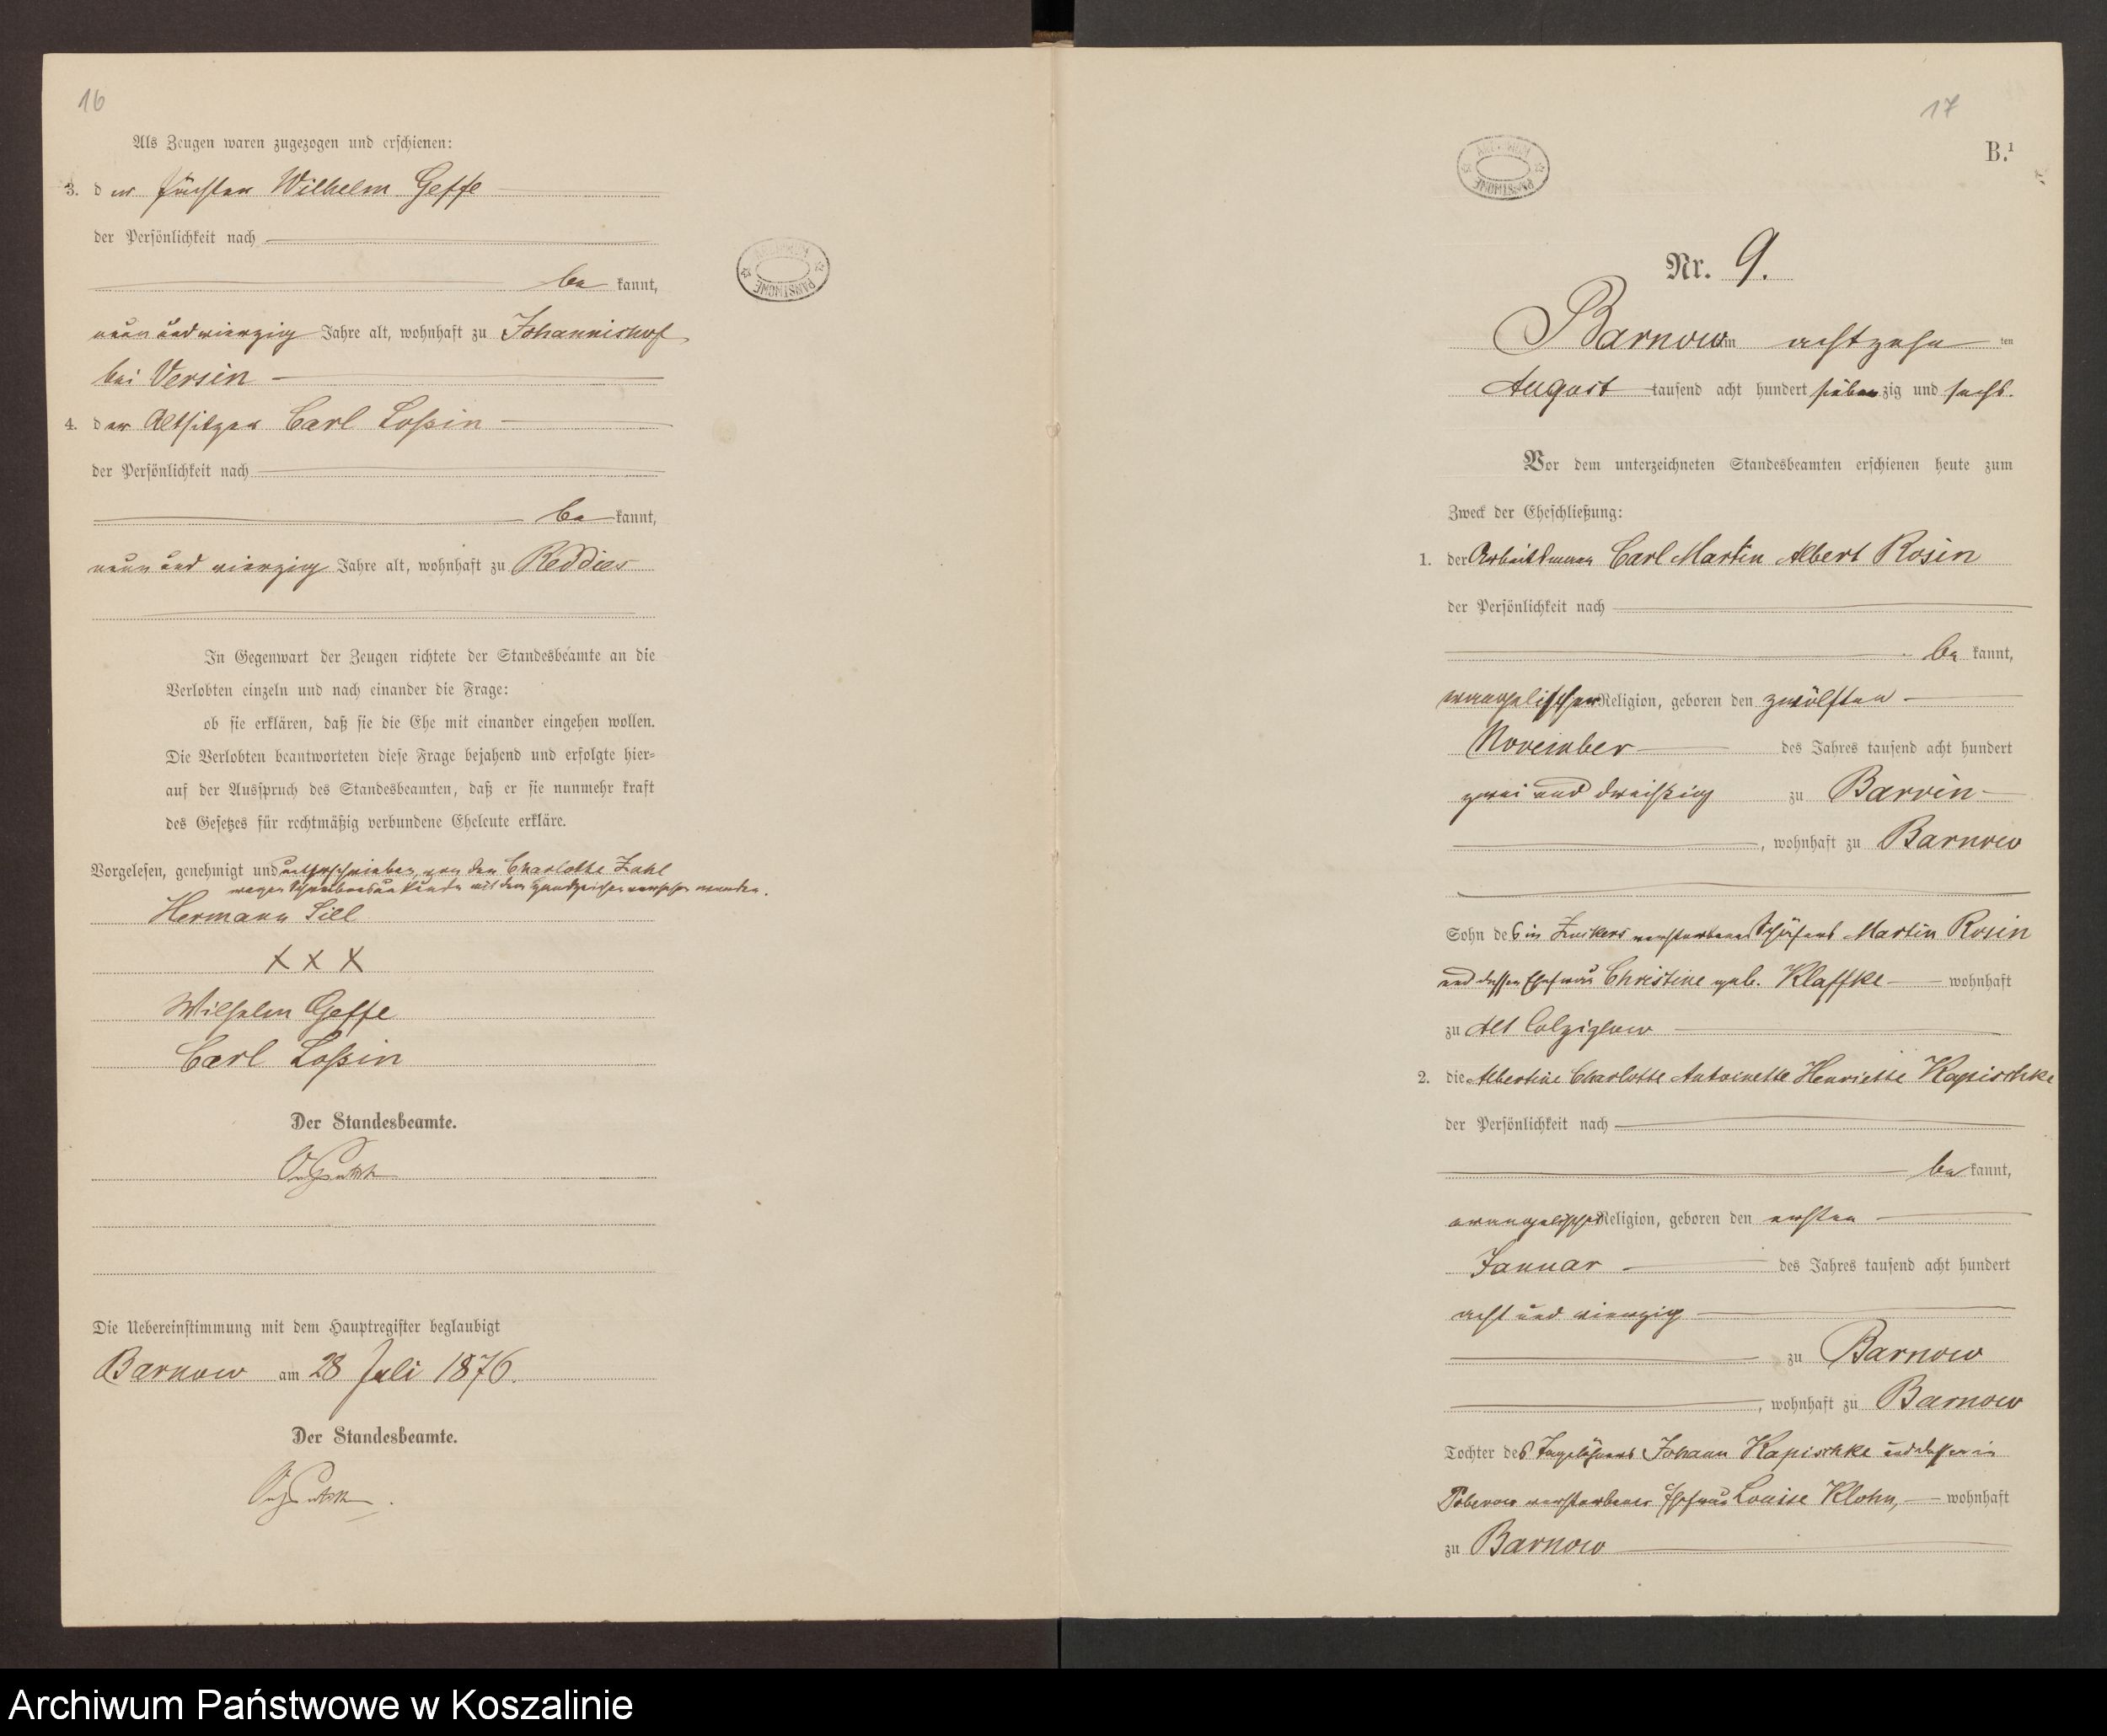 16
Als Zeugen waren zugezogen und erschienen:
3. der Förster Wilhelm Geffe
der Persönlichkeit nach
be kannt,
neun und vierzig Jahre alt, wohnhaft zu Johannishof
bei Versin
4. der Altsitzer Carl Loßin
der Persönlichkeit nach
be kannt,
neun und vierzig Jahre alt, wohnhaft zu Reddies
In Gegenwart der Zeugen richtete der Standesbeamte an die
Verlobten einzeln und nach einander die Frage:
ob sie erklären, daß sie die Ehe mit einander eingehen wollen.
Die Verlobten beantworteten diese Frage bejahend und erfolgte hier=
auf der Ausspruch des Standesbeamten, daß er sie nunmehr kraft
des Gesetzes für rechtmäßig verbundene Eheleute erkläre.
Vorgelesen, genehmigt und unterschrieben, von der Charlotte Zahl
wegen Schreibensunkunde mit dem Handzeichen versehen worden.
Hermann Sill
X X X
Wilhelm Geffe
Carl Loßin
Der Standesbeamte.
Die Uebereinstimmung mit dem Hauptregister beglaubigt
Barnow am 28 Juli 1876.
Der Standesbeamte.
17
B.¹
Nr. 9.
Barnow am achtzehn ten
August tausend acht hundert siebenzig und sechs.
Vor dem unterzeichneten Standesbeamten erschienen heute zum
Zweck der Eheschließung:
1. der Arbeitsmann Carl Martin Albert Rosin
der Persönlichkeit nach
be kannt,
evangelischer Religion, geboren den zwölften
November des Jahres tausend acht hundert
zwei und dreißig zu Barvin
, wohnhaft zu Barnow
Sohn des in Zuckers verstorbenen Schäfers Martin Rosin
und dessen Ehefrau Christine geb. Klaffke wohnhaft
zu Alt Colziglow
2. die Albertine Charlotte Antoinette Henriette Kapischke
der Persönlichkeit nach
be kannt,
evangelischer Religion, geboren den ersten
Januar des Jahres tausend acht hundert
acht und vierzig
zu Barnow
, wohnhaft zu Barnow
Tochter des Tagelöhners Johann Kapischke und dessen in
Poberow verstorbenen Ehefrau Louise Klohn, wohnhaft
zu Barnow
Archiwum Państwowe w Koszalinie